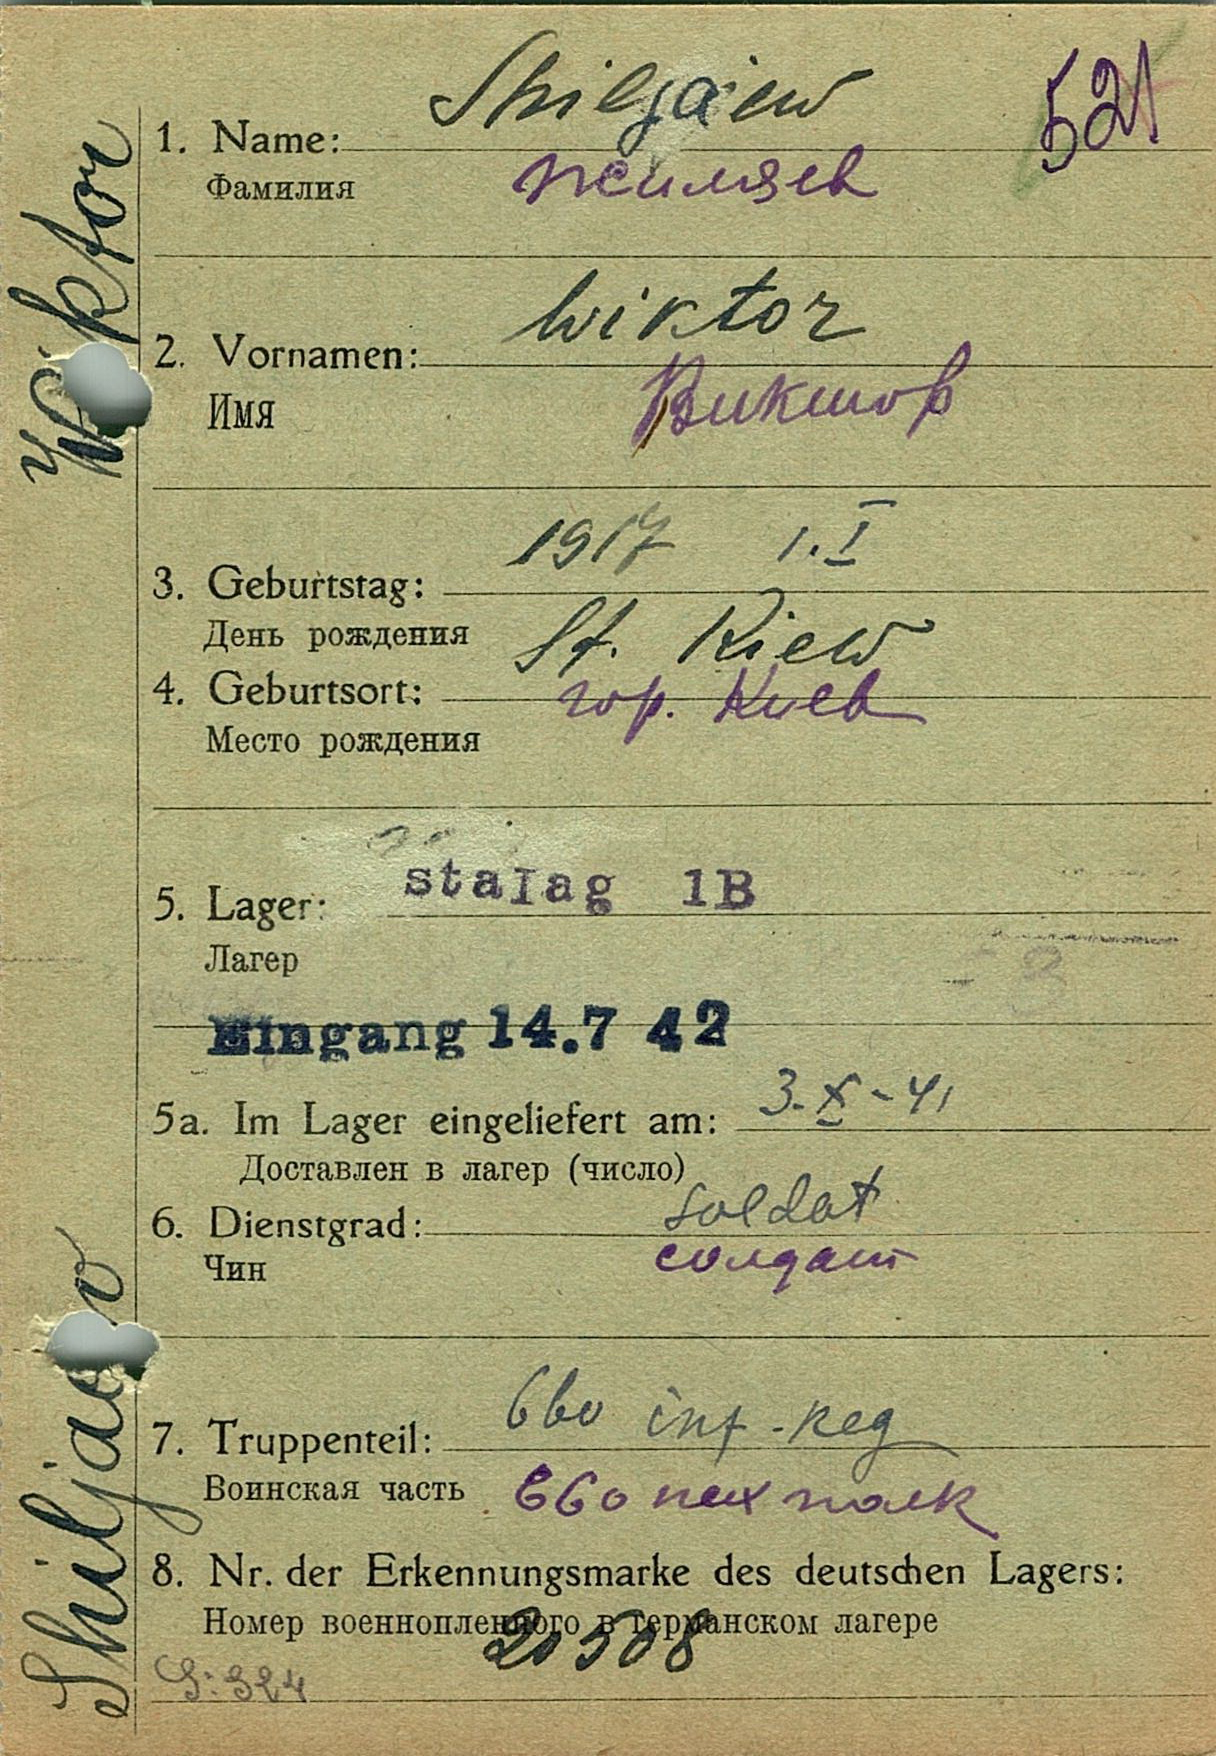 Shiljaew
521
1. Name:
Фамилия Жиляев
Wiktor
2. Vornamen:
Имя Виктор
1917 1.I
3. Geburtstag:
День рождения
St. Kiew
4. Geburtsort:
гор. Киев
Место рождения
5. Lager: stalag 1B
Лагер
Eingang 14.7 42
5a. Im Lager eingeliefert am: 3.X-41
Доставлен в лагер (число)
6. Dienstgrad: soldat
Чин солдат
7. Truppenteil: 660 inf-Reg
Воинская часть 660 пех полк
8. Nr. der Erkennungsmarke des deutschen Lagers:
Номер военнопленного в германском лагере
20508
S: 324
Shiljaew
Wiktor